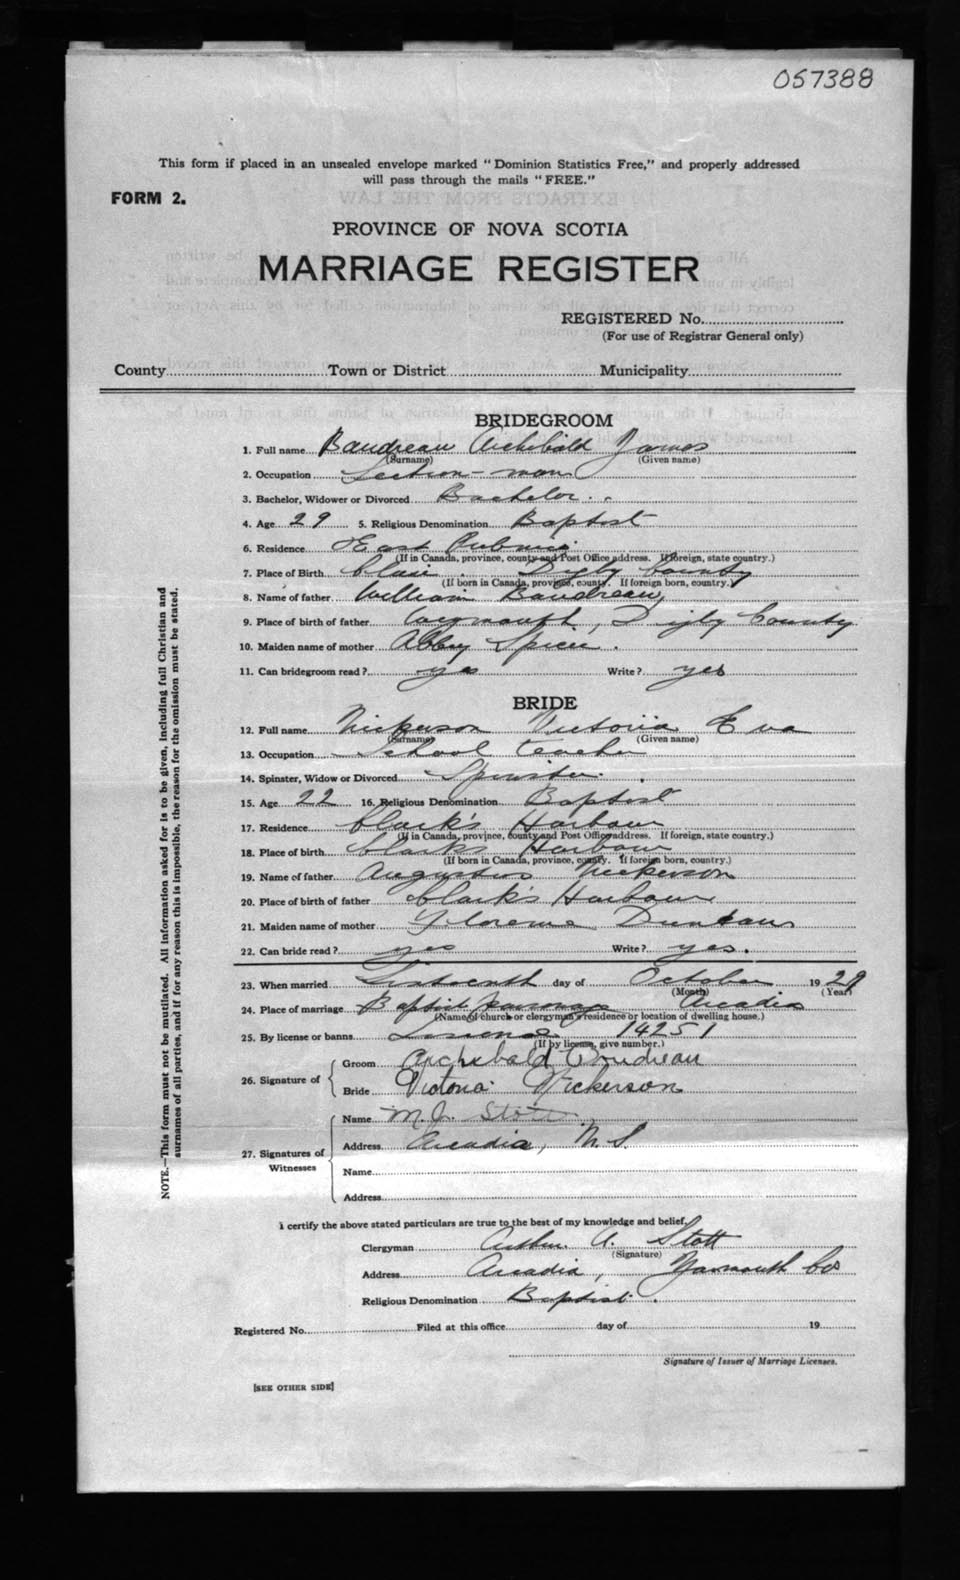 057388
This form if placed in an unsealed envelope marked "Dominion Statistics Free," and properly addressed
will pass through the mails "FREE."
FORM 2.
PROVINCE OF NOVA SCOTIA
MARRIAGE REGISTER
REGISTERED No.
(For use of Registrar General only)
County Town or District Municipality
BRIDEGROOM
1. Full name Baudreau Archibald James
(Surname) (Given name)
2. Occupation Section-man
3. Bachelor, Widower or Divorced Bachelor
4. Age 29 5. Religious Denomination Baptist
6. Residence East Pubnico
(If in Canada, province, county and Post Office address. If foreign, state country.)
7. Place of Birth Digby County
(If born in Canada, province, county. If foreign born, country.)
8. Name of father William Baudreau
9. Place of birth of father Weymouth, Digby County
10. Maiden name of mother Abby Spicer.
11. Can bridegroom read? yes Write? yes
BRIDE
12. Full name Nickerson Victoria Eva
(Surname) (Given name)
13. Occupation School teacher
14. Spinster, Widow or Divorced Spinster.
15. Age 22 16. Religious Denomination Baptist
17. Residence Clark's Harbour
(If in Canada, province, county and Post Office address. If foreign, state country.)
18. Place of birth Clark's Harbour
(If born in Canada, province, county. If foreign born, country.)
19. Name of father Augustus Nickerson
20. Place of birth of father Clark's Harbour
21. Maiden name of mother Florence
22. Can bride read? yes Write? yes.
23. When married Sixteenth day of October 1929
(Month) (Year)
24. Place of marriage Baptist parsonage Arcadia
(Name of church or clergyman's residence or location of dwelling house.)
25. By license or banns License 14251
(If by license, give number.)
26. Signature of Groom Archibald Boudreau
Bride Victoria Nickerson
27. Signatures of Witnesses
Name M. J. Stott
Address Arcadia, N.S.
Name
Address
I certify the above stated particulars are true to the best of my knowledge and belief.
Clergyman Arthur A. Stott
(Signature)
Address Arcadia, Yarmouth Co
Religious Denomination Baptist.
Registered No. Filed at this office day of 19
Signature of Issuer of Marriage Licenses.
[SEE OTHER SIDE]
NOTE.—This form must not be mutilated. All information asked for is to be given, including full Christian and
surnames of all parties, and if for any reason this is impossible, the reason for the omission must be stated.